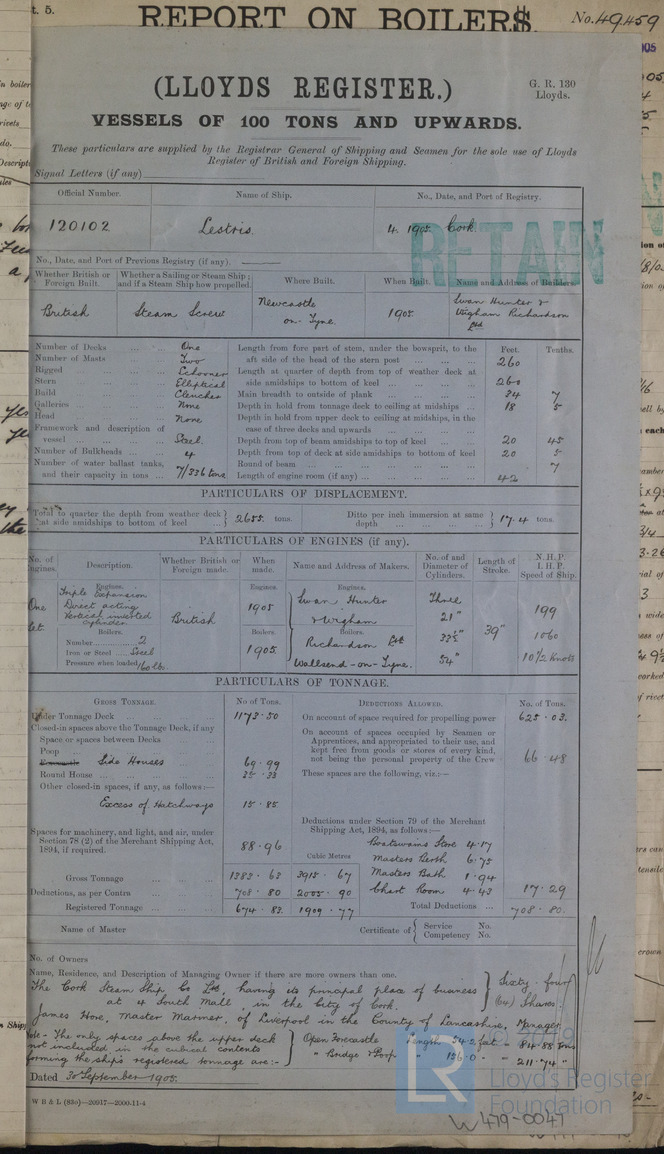 REPORT ON BOILERS.
No. 49459
(LLOYDS REGISTER.)
G. R. 130
Lloyds.
VESSELS OF 100 TONS AND UPWARDS.
These particulars are supplied by the Registrar General of Shipping and Seamen for the sole use of Lloyds
Register of British and Foreign Shipping.
Signal Letters (if any)
Official Number. Name of Ship. No., Date, and Port of Registry.
120102 Lestris. 4. 1905 Cork
RETAIN
No., Date, and Port of Previous Registry (if any).
Whether British or Foreign Built. Whether a Sailing or Steam Ship; and if a Steam Ship how propelled. Where Built. When Built. Name and Address of Builders.
British Steam Screw Newcastle on-Tyne. 1905. Swan Hunter & Wigham Richardson Ltd
Number of Decks One
Number of Masts Two
Rigged Schooner
Stern Elliptical
Build Clencher
Galleries None
Head None
Framework and description of
vessel Steel.
Number of Bulkheads 4
Number of water ballast tanks,
and their capacity in tons 7/336 tons
Feet. Tenths.
Length from fore part of stem, under the bowsprit, to the
aft side of the head of the stern post 260
Length at quarter of depth from top of weather deck at
side amidships to bottom of keel 260
Main breadth to outside of plank 34 7
Depth in hold from tonnage deck to ceiling at midships 18 5
Depth in hold from upper deck to ceiling at midships, in the
case of three decks and upwards
Depth from top of beam amidships to top of keel 20 45
Depth from top of deck at side amidships to bottom of keel 20 5
Round of beam 7
Length of engine room (if any) 42
PARTICULARS OF DISPLACEMENT.
Total to quarter the depth from weather deck
at side amidships to bottom of keel 2655. tons.
Ditto per inch immersion at same
depth 17.4 tons.
PARTICULARS OF ENGINES (if any).
No. of Engines. Description. Whether British or Foreign made. When made. Name and Address of Makers. No. of and Diameter of Cylinders. Length of Stroke. N.H.P. I.H.P. Speed of Ship.
One Set
Engines.
Triple Expansion
Direct acting
Vertical inverted
cylinder
Boilers.
Number 2
Iron or Steel Steel
Pressure when loaded 160 lbs.
British
Engines. 1905
Boilers. 1905.
Engines.
Swan Hunter
& Wigham
Boilers.
Richardson Ltd
Wallsend-on-Tyne.
Three
21"
54"
39"
199
1060
10½ Knots
PARTICULARS OF TONNAGE.
GROSS TONNAGE. No. of Tons.
Under Tonnage Deck 1173.50
Closed-in spaces above the Tonnage Deck, if any
Space or spaces between Decks
Poop
Side Houses 69.99
Round House
Other closed-in spaces, if any, as follows:—
Excess of Hatchways 15.85
Spaces for machinery, and light, and air, under
Section 78 (2) of the Merchant Shipping Act,
1894, if required. 88.96
Cubic Metres
Gross Tonnage 1383.63 3915.67
Deductions, as per Contra 708.80 2005.90
Registered Tonnage 674.83 1909.77
DEDUCTIONS ALLOWED. No. of Tons.
On account of space required for propelling power 625.03.
On account of spaces occupied by Seamen or
Apprentices, and appropriated to their use, and
kept free from goods or stores of every kind,
not being the personal property of the Crew 66.48
These spaces are the following, viz.:—
Deductions under Section 79 of the Merchant
Shipping Act, 1894, as follows:—
Boatswains Store 4.17
Masters Berth 6.75
Masters Bath 1.94
Chart Room 4.43 17.29
Total Deductions 708.80.
Name of Master
Certificate of Service No.
Competency No.
No. of Owners
Name, Residence, and Description of Managing Owner if there are more owners than one.
The Cork Steam Ship Co Ltd, having its principal place of business Sixty-four
at 4 South Mall in the City of Cork. (64) Shares.
James Hore, Master Mariner, of Liverpool in the County of Lancashire, Manager
Note - The only spaces above the upper deck
not included in the cubical contents
forming the ship's registered tonnage are:-
Open Forecastle Length 34.2 feet - 84.88 Tons
" Bridge & Poop " 136.0 " - 211.74 "
Dated 30 September 1905.
W B & L (83o)—20917—2000.11-4
LR Lloyd's Register
Foundation
W479-0047